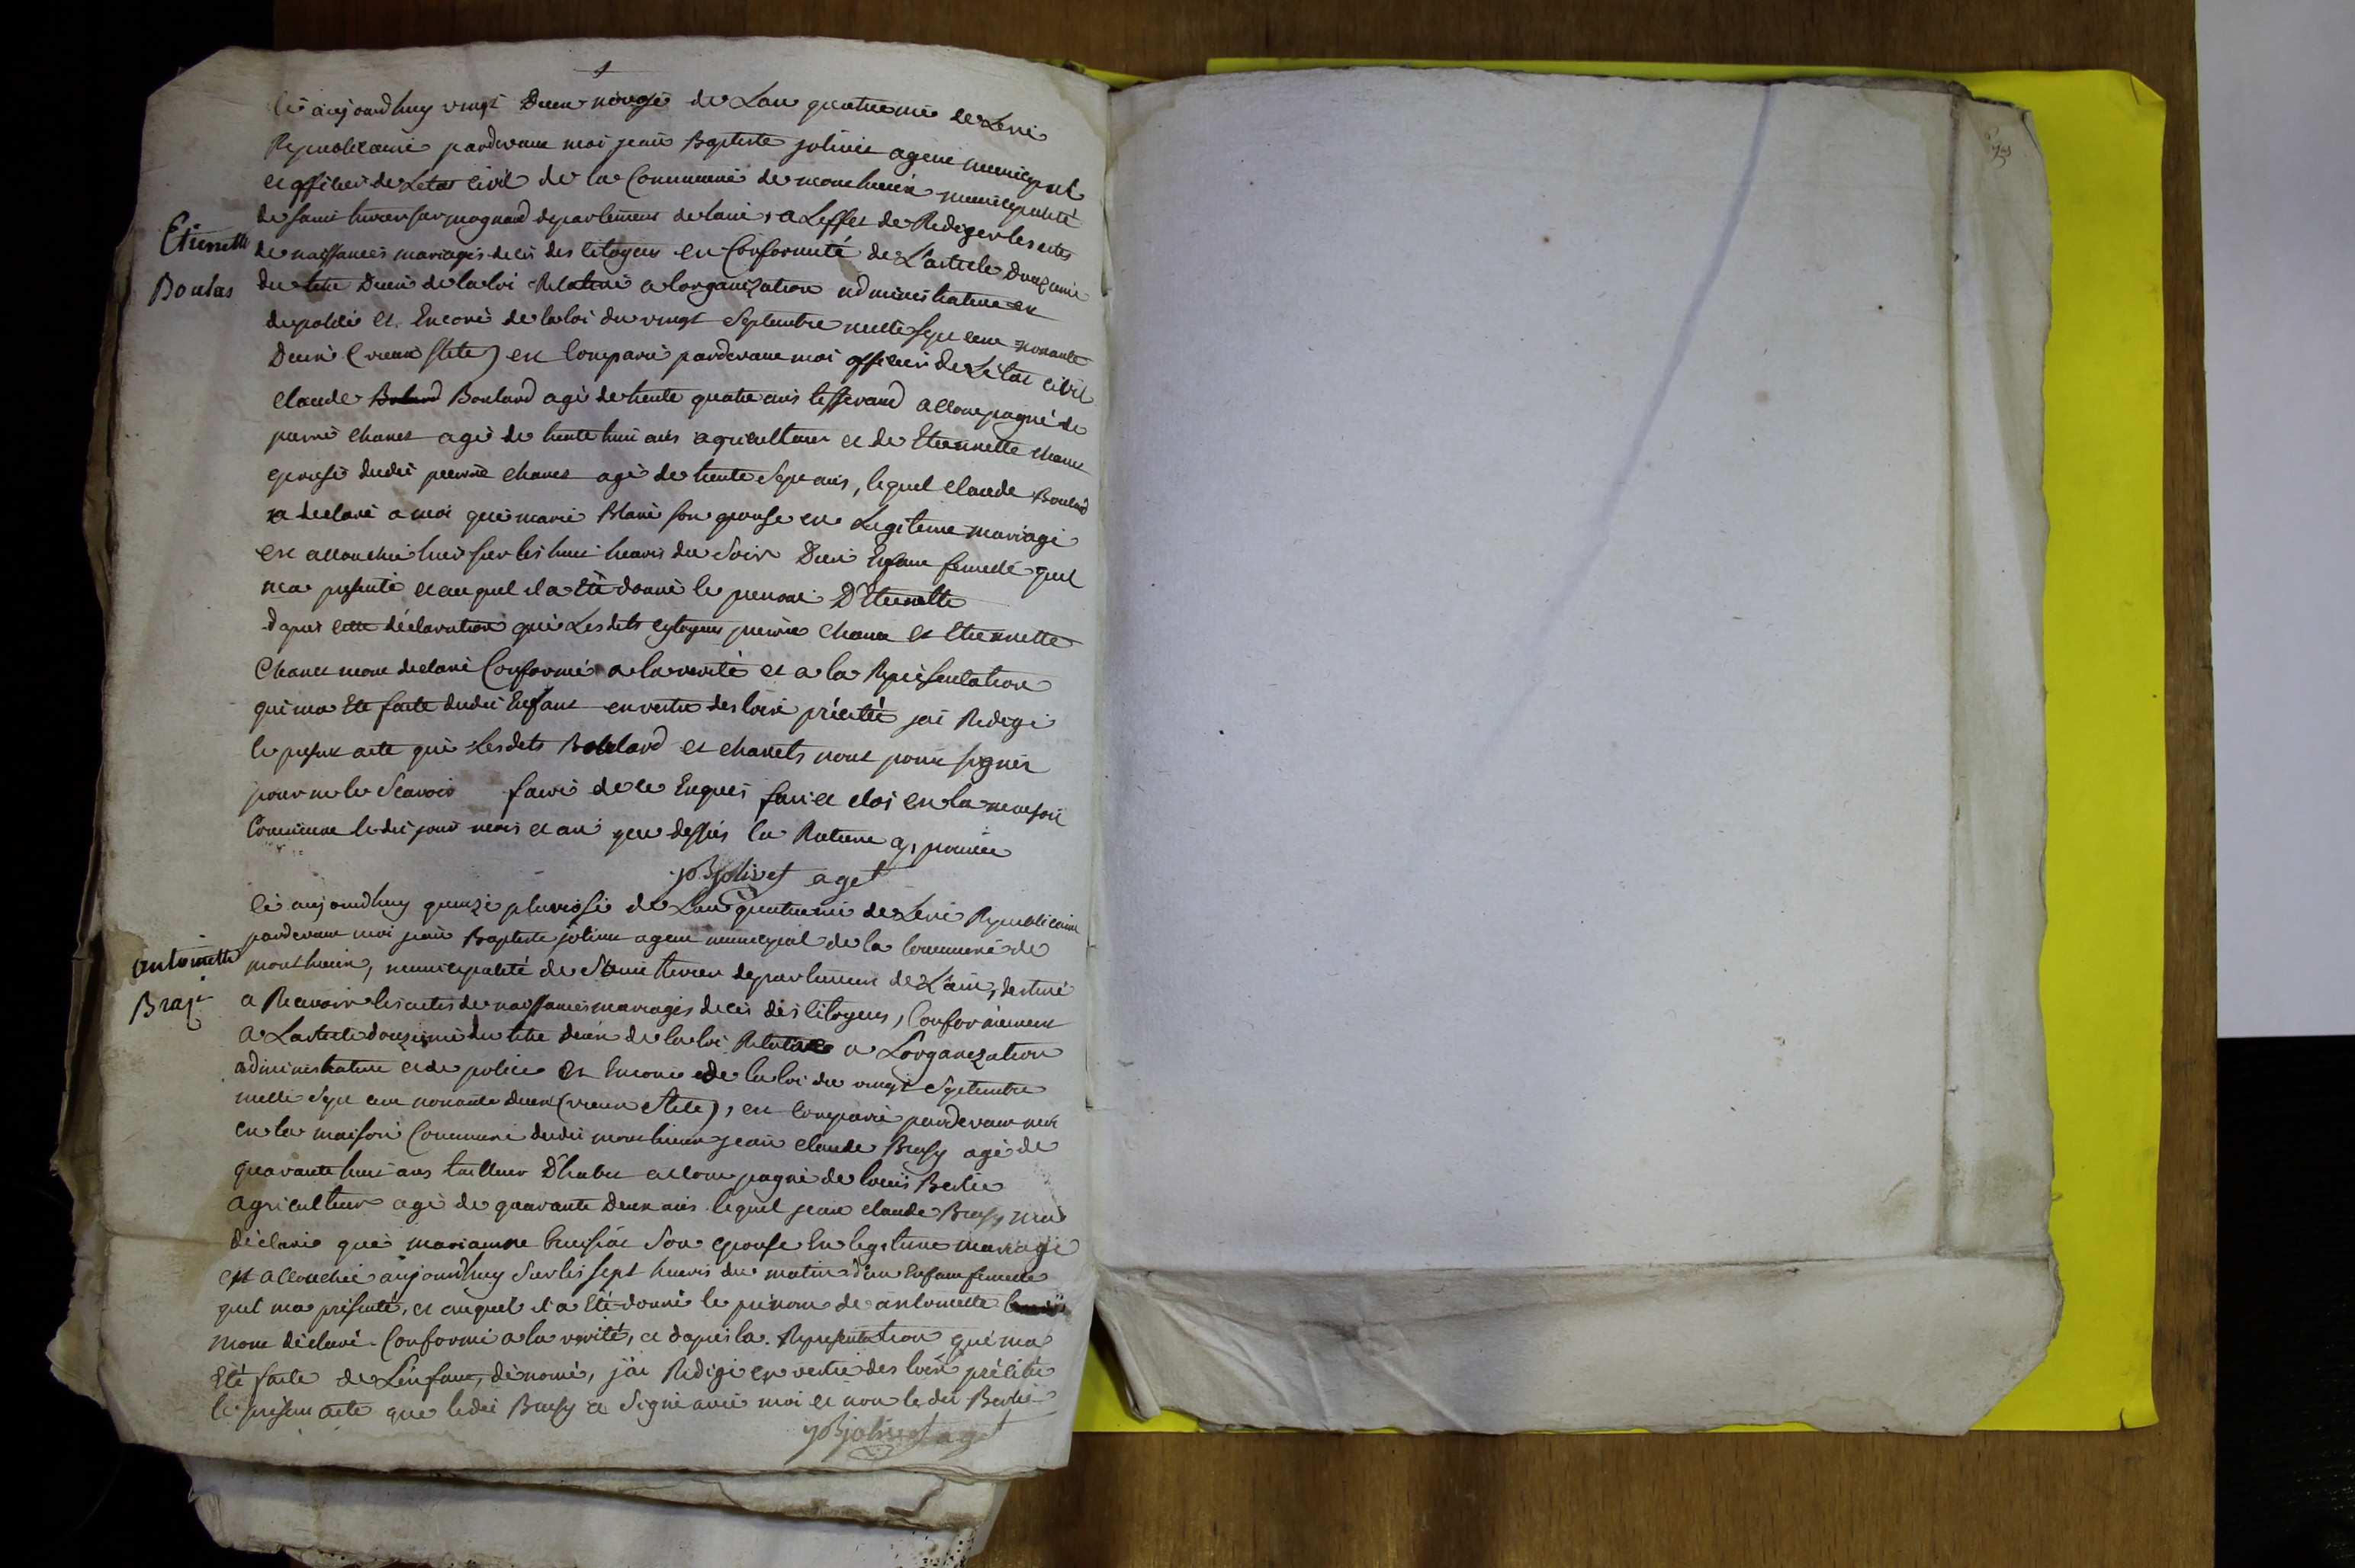 1
Ce aujourdhuy vingt Deux nivose de Lan quatrieme de Lere
Republicaine pardevant moi jean Baptiste jolivet agent municipal
et officier de Letat civil de la Commune de monthieux municipalité
de saint trivier sur moignand departement de lain, a Leffet de Rediger les actes
Etiennette
de naissances mariages deces des citoyens en Conformité de L'article Douzieme
Boulas
du titre Deux de la loi Relative a lorganization administrative et
de police et Encore de la loi du vingt Septembre mille sept cent nonante
Deux (vieux stile) est Comparu pardevant moi officier de Létat civil
claude Boulard agé de trente quatre ans tisserand accompagné de
pierre chanet agé de trente huit ans agriculteur et de Etiennette chanet
epouse dudit pierre chanet agé de trente Sept ans, lequel claude Boulard
a declaré a moi que marie Blanc son epouse en Legitime mariage
est accouchée hier sur les huit heures du Soir Dun Enfant femelle quil
ma presenté et auquel il a Eté donné le prenom D'Etiennette
dapres cette déclaration que Les dits cytoyens pierre chanet et Etiennette
Chanet mont declaré Conforme a la verité et a la Représentation
qui ma Eté faite dudit Enfant en vertu des loix précitée jai Redigé
le present acte que Lesdits Boulard et chanets nont point signer
pour ne le Scavoir de ce Enquis fait et clos en la maison
Commune ledit jour mois et an que dessus la Rature approuvée
jBjolivet aget
Ce aujourdhuy quinze pluviose de Lan quatrieme de Lere Republicaine
pardevant moi jean Baptiste jolivet agent municipal de la Commune de
antoinette
monthieux, municipalité de Saint trivier departement de L'ain, destiné
a Recevoir les actes de naissances mariages deces des citoyens, Conformement
a Larticle douzieme du titre deux de la loi Relative a Lorganization
administrative et de police et Encore de la loi du vingt Septembre
mille Sept cent nonante deux (vieux stile), est Comparu pardevant moi
en la maison Commune dudit monthieux jean claude Brusy agé de
quarante huit ans tailleur D'habit accompagné de louis Berlie
agriculteur agé de quarante Deux ans lequel jean claude Brusy ma
déclaré que mariamne son epouse En legitime mariage
est accouchée aujourdhuy Sur les sept heures du matin dun Enfant femelle
quil ma présenté, et auquel il a Eté donné le prénom de antoinette
mont déclaré Conforme a la vérité, et dapres la Representation qui ma
Eté faite de Lenfant, dénomé, j'ai Redigé en vertu des loix précitée
le présent acte que ledit Brusy a Signé avec moi et non ledit Berlie
jBjolivet aget